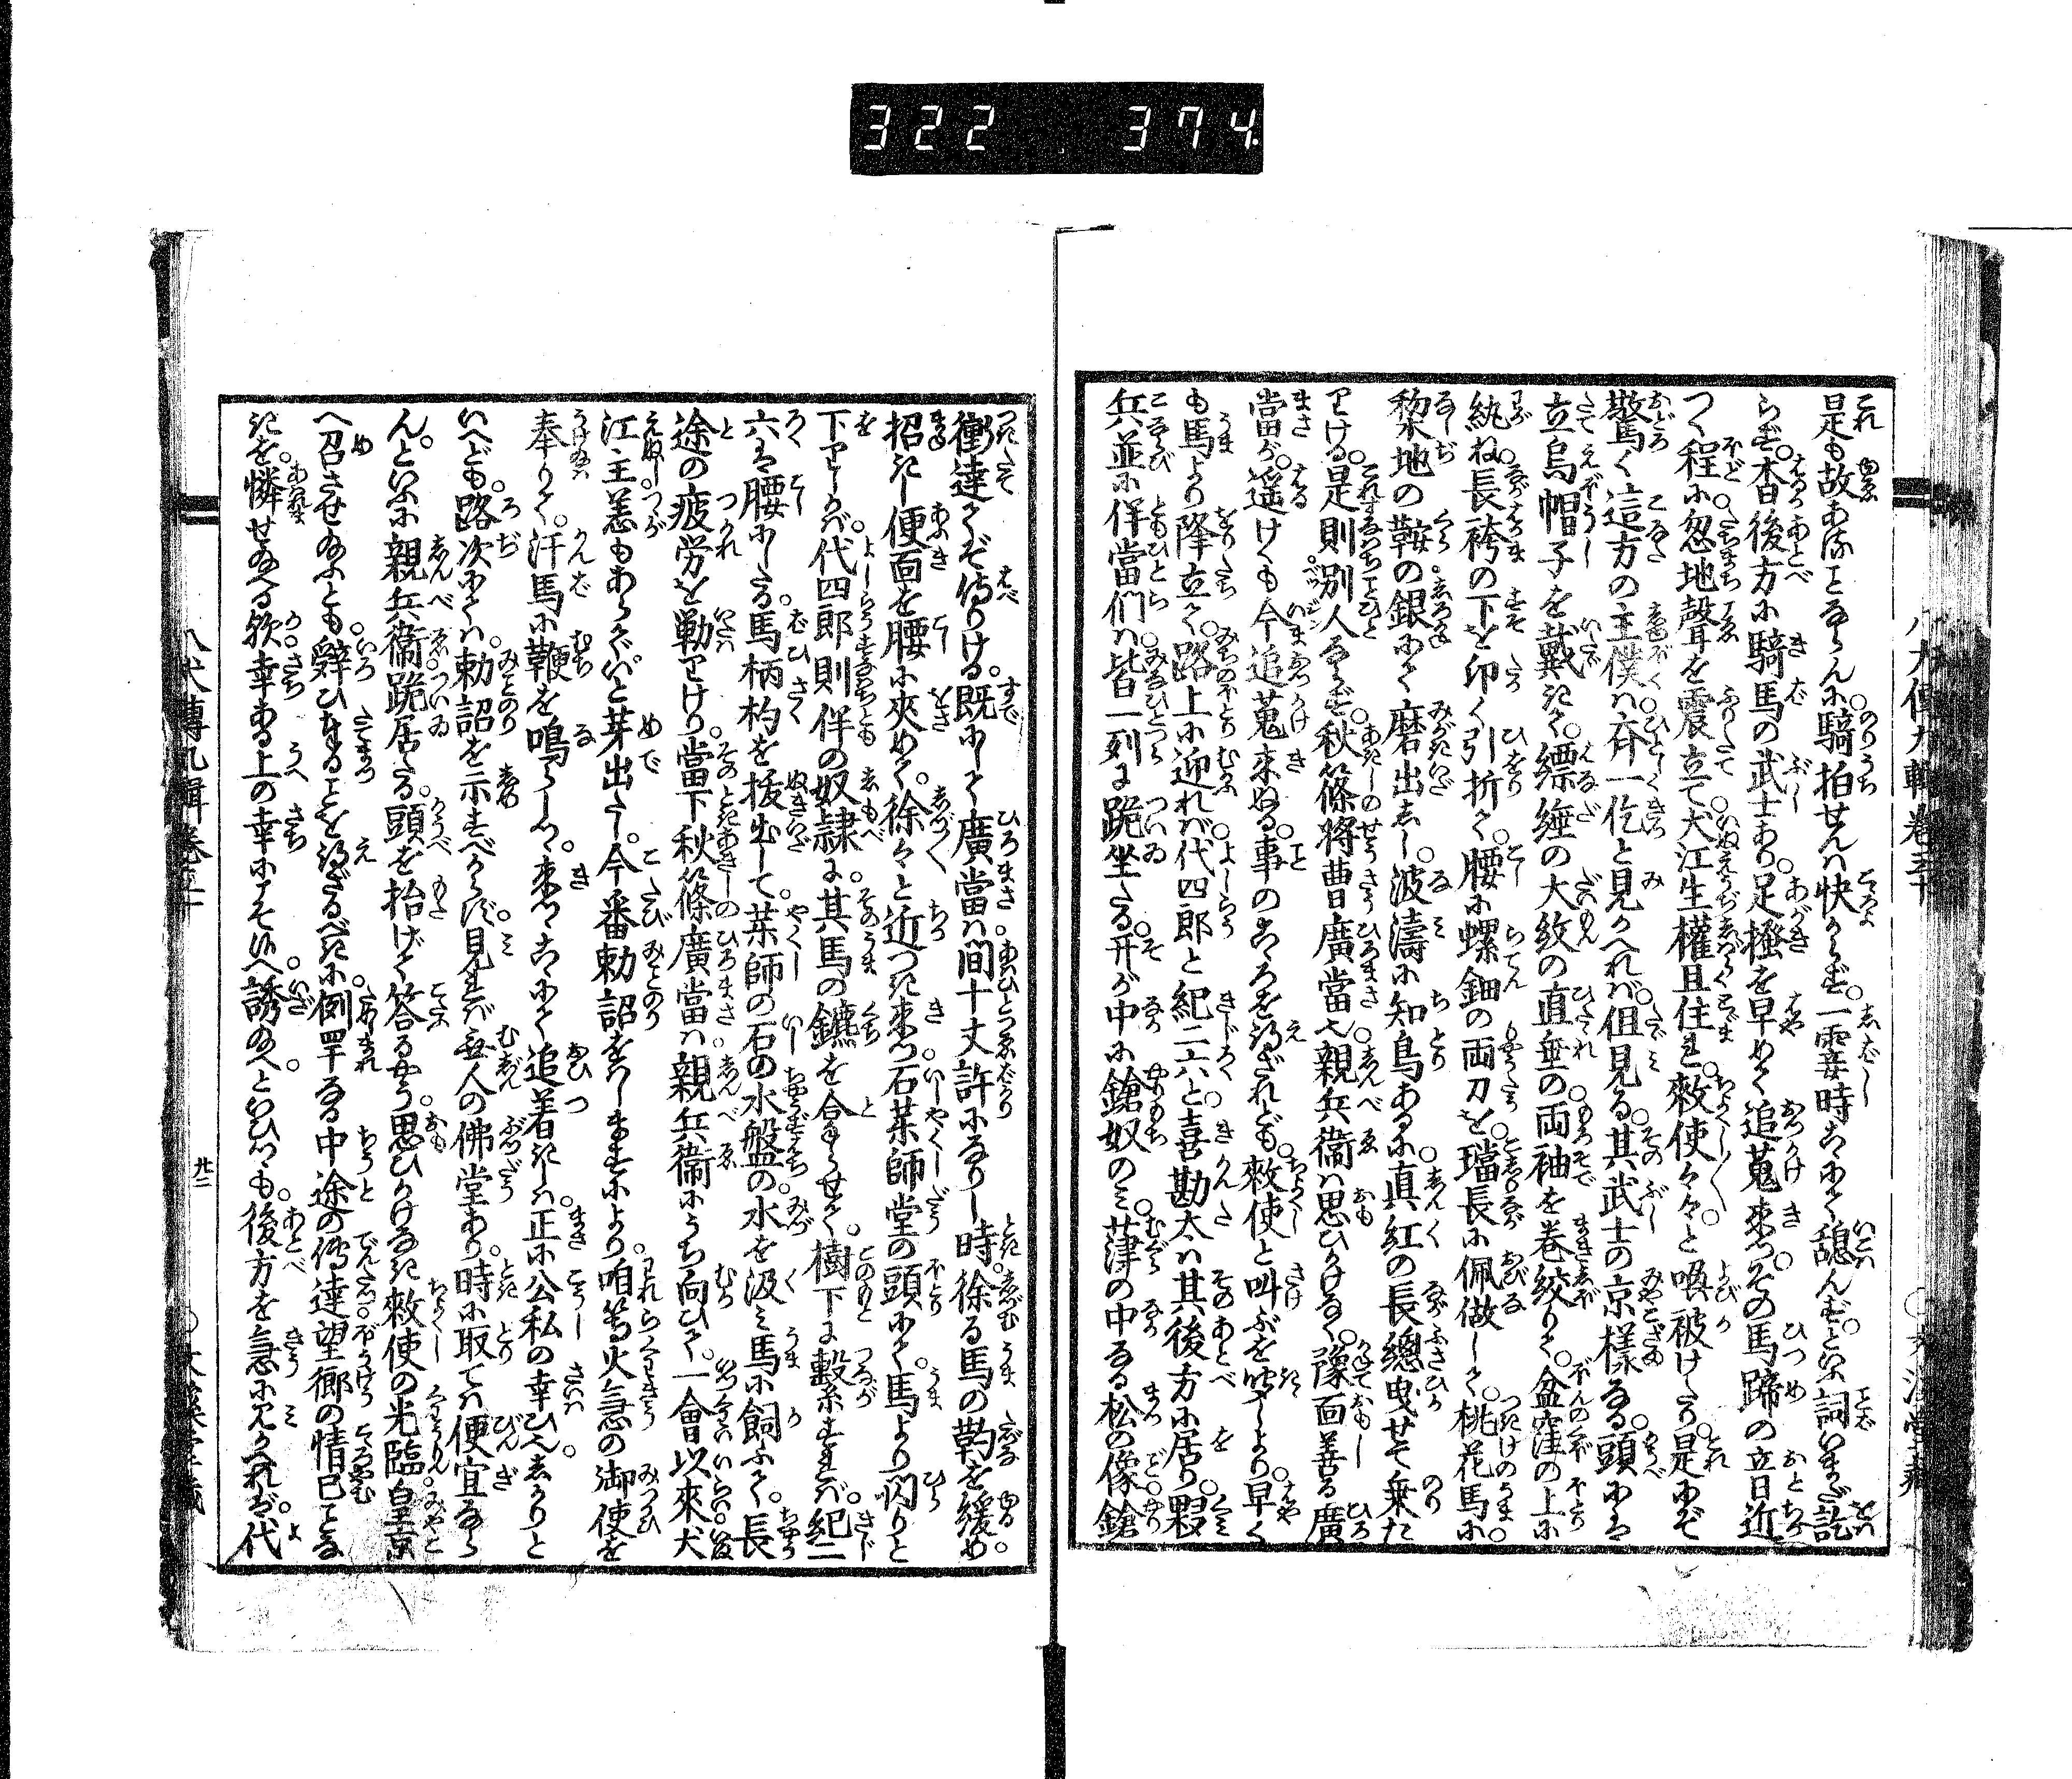 322 374
是も故あることならんに騎拍せんは快からず一霎時こゝにて憩んずといふ詞いまだ訖
らず杳後方に騎馬の武士あり足掻を早めて追蒐来つその馬蹄の立日近
つく程に忽地聲を震立て犬江生權且住まれ敕使々々と喚被けたり是にぞ
驚く這方の主僕は斉一仡と見かへれば但見る其武士の京樣なる頭には
立烏帽子を戴きて縹縺の大紋の直垂の両袖を巻絞りて盆窪の上に
紈ね長袴の下を卬く引折て腰に螺鈿の両刀を璫長に佩做して桃花馬に
黎地の鞍の銀にて磨出しゝ波濤に知鳥あるに真紅の長總曳せて乗た
りける是則別人ならず秋篠將曹廣當也親兵衞は思ひかけなく豫面善る廣
當が遥けくも今追蒐来ぬる事のこゝろを得ざれども敕使と叫ぶを聞しより早く
も馬より降立て路上に迎れば代四郎と紀二六と喜勘太は其後方に居り夥
兵並に伴當們は皆一列に跪坐たる开が中に鎗奴のみ葎の中なる松の像鎗
衝達てぞ侍りける既にして廣當は間十丈許になりし時徐る馬の靮を緩め
招きし便面を腰に夾めて徐々と近つき来つ石薬師堂の頭にて馬より閃りと
下りしかば代四郎則伴の奴隷に其馬の鑣を合らせて樹下に繋すれば紀二
六は腰にしたる馬柄杓を抜出して薬師の石の水盤の水を汲み馬に飼ふて長
途の疲労を勦りけり當下秋篠廣當は親兵衞にうち向ひて一會以來犬
江主恙もあらでいと芽出たし今番勅詔をはしますにより咱等火急の御使を
奉りて汗馬に鞭を鳴らしつゝ来つこゝにて追着きしは正に公私の幸ひ也しかりと
いへども路次にては勅詔を示すべからず見れば無人の佛堂あり時に取ては便宜なら
んといふに親兵衞跪居たる頭を抬げて答るやう思ひかけなき敕使の光臨皇京
へ召させ給ふとも辭ひまゐることを得ざるべきに例罕なる中途の傳達望郷の情已ことな
きを憐せ給へる歟幸ある上の幸にこそ候へ誘給へといひつゝも後方を急に見かへれば代
八犬傳九輯卷三十
廿二